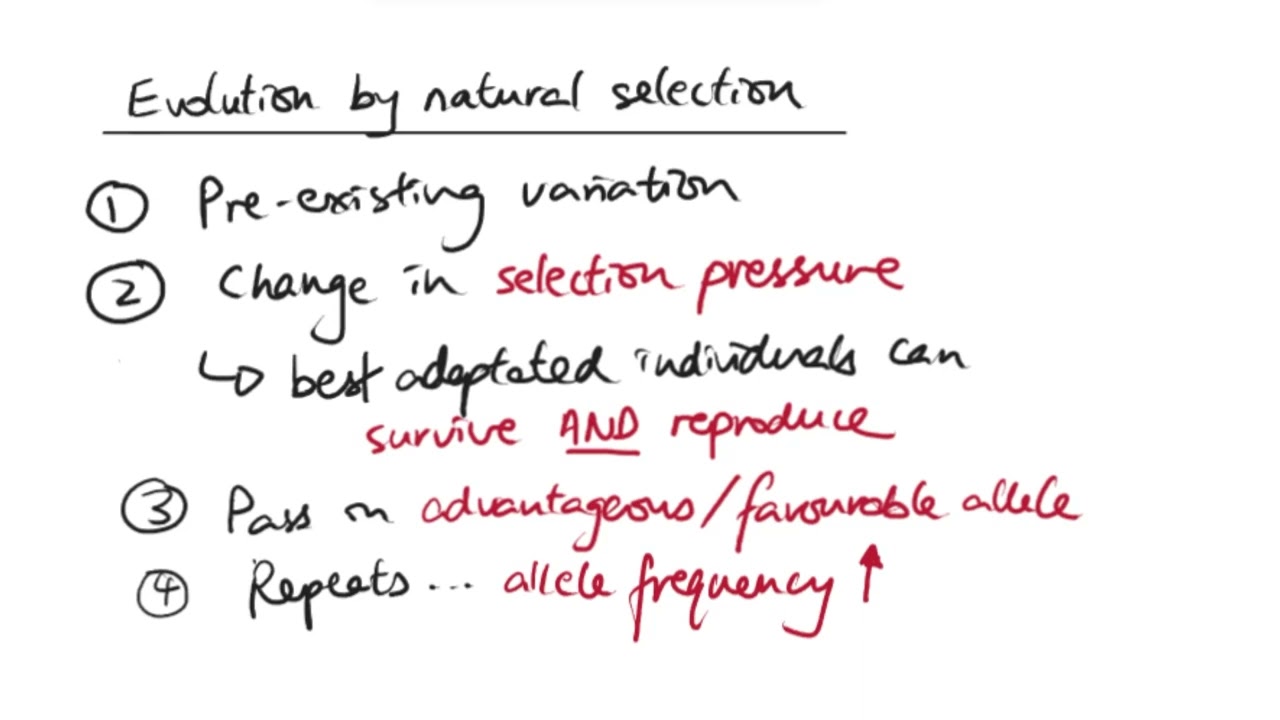 Evolution by natural selection
① Pre-existing variation
② Change in selection pressure
↳ best adaptated individuals can
survive AND reproduce
③ Pass on advantageous/favourable allele
④ Repeats... allele frequency ↑